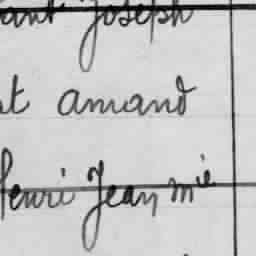 Joseph
st amand
henri Jean mie